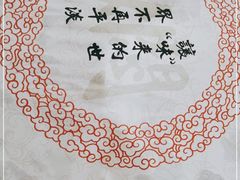 讓“味”来的世
界不再平淡